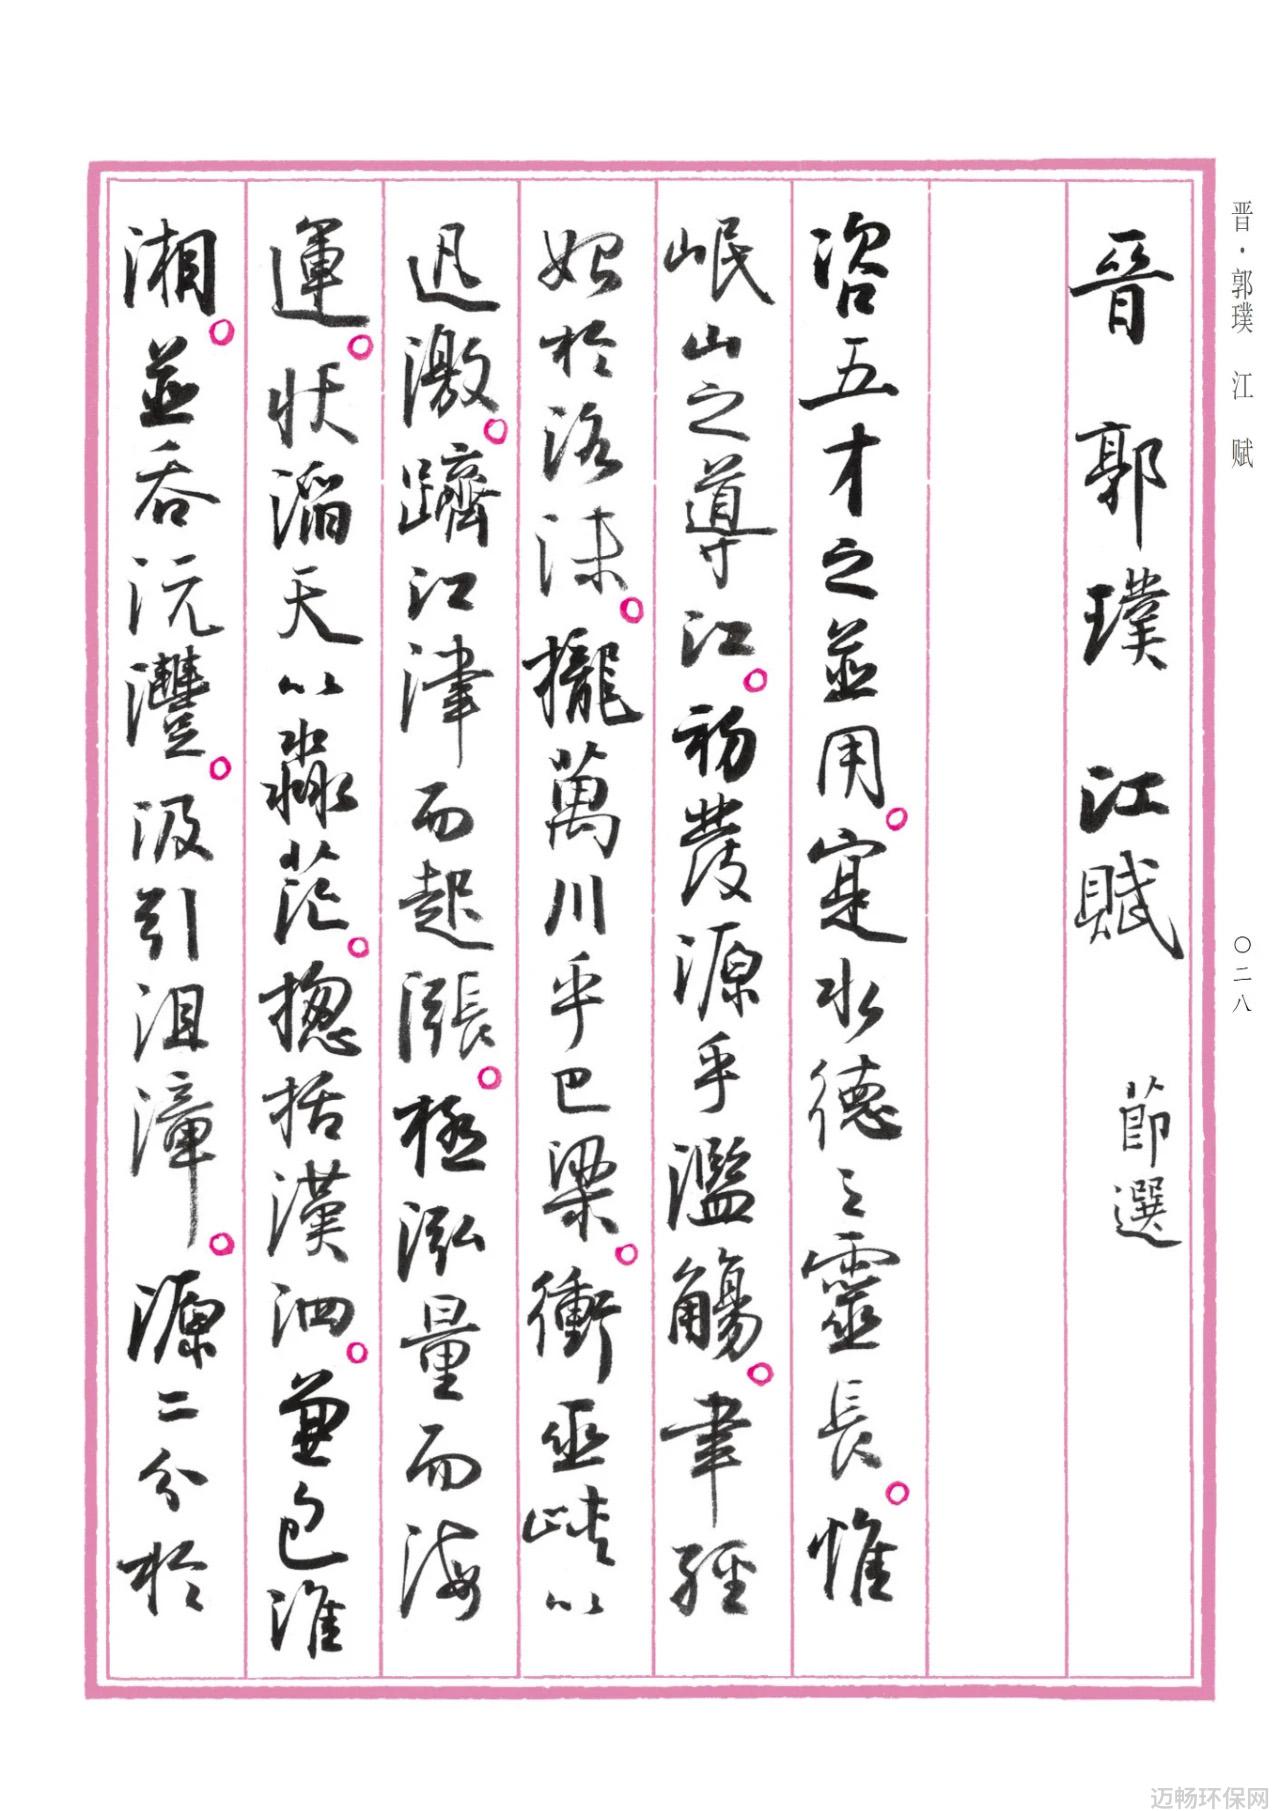 晋·郭璞 江 赋
〇二八
晉 郭璞 江賦 節選
咨五才之並用。寔水德之靈長。惟
岷山之導江。初發源乎濫觴。聿經
始於洛沬。攏萬川乎巴梁。衝巫峽以
迅激。躋江津而起漲。極泓量而海
運。狀滔天以淼茫。揔括漢泗。兼包淮
湘。並吞沅灃。汲引沮漳。源二分於
迈畅环保网